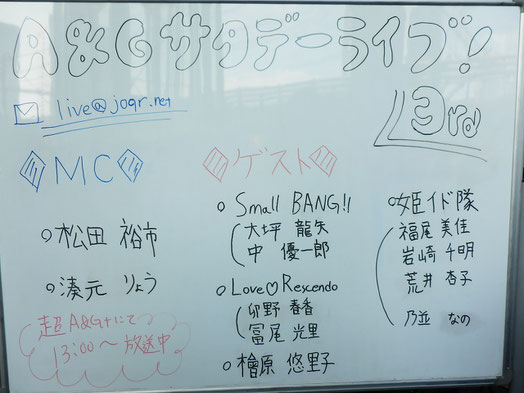 A&Gサタデーライブ!
3rd
live@joqr.net
MC
松田 裕市
湊元 りょう
超A&G+にて
13:00〜放送中
ゲスト
Small BANG!!
大坪 龍矢
中 優一郎
Love♡Rescendo
卯野 春香
冨尾 光里
檜原 悠里子
姫イド隊
福尾 美佳
岩崎 千明
荒井 杏子
乃並 なの